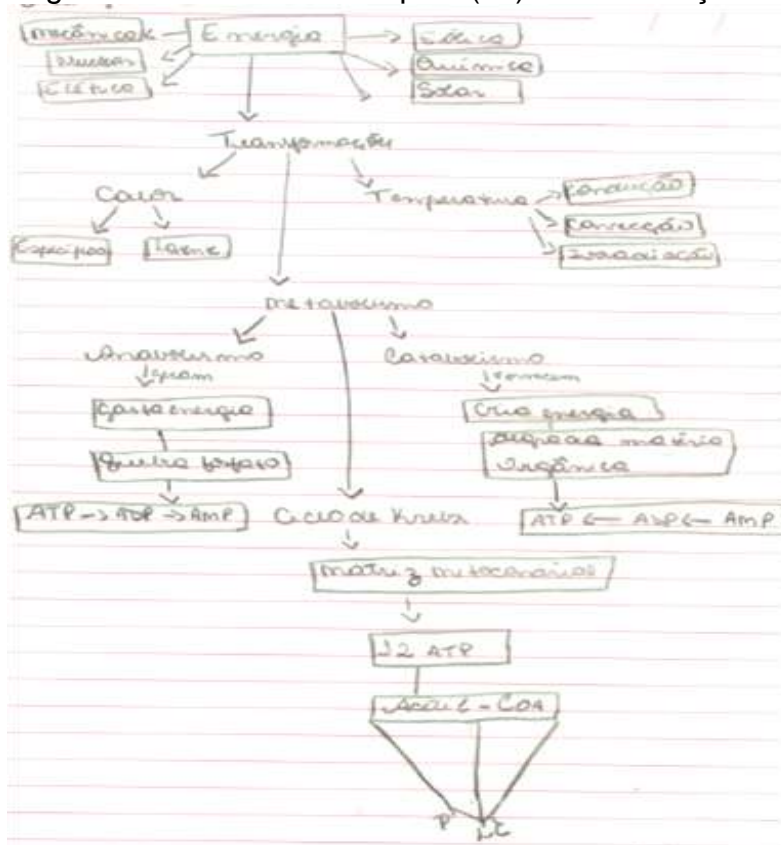 Mecânica
Energia
Eólica
Nuclear
Química
Elétrica
Solar
Transformações
Calor
Temperatura
Condução
Específico
Convecção
Irradiação
Metabolismo
Anabolismo
Catabolismo
Gasta energia
Cria energia
Quebra fosfato
degrada matéria
Orgânica
ATP → ADP → AMP
Ciclo de Krebs
ATP ← ADP ← AMP
matriz mitocondrial
ATP
Acetil - COA
P